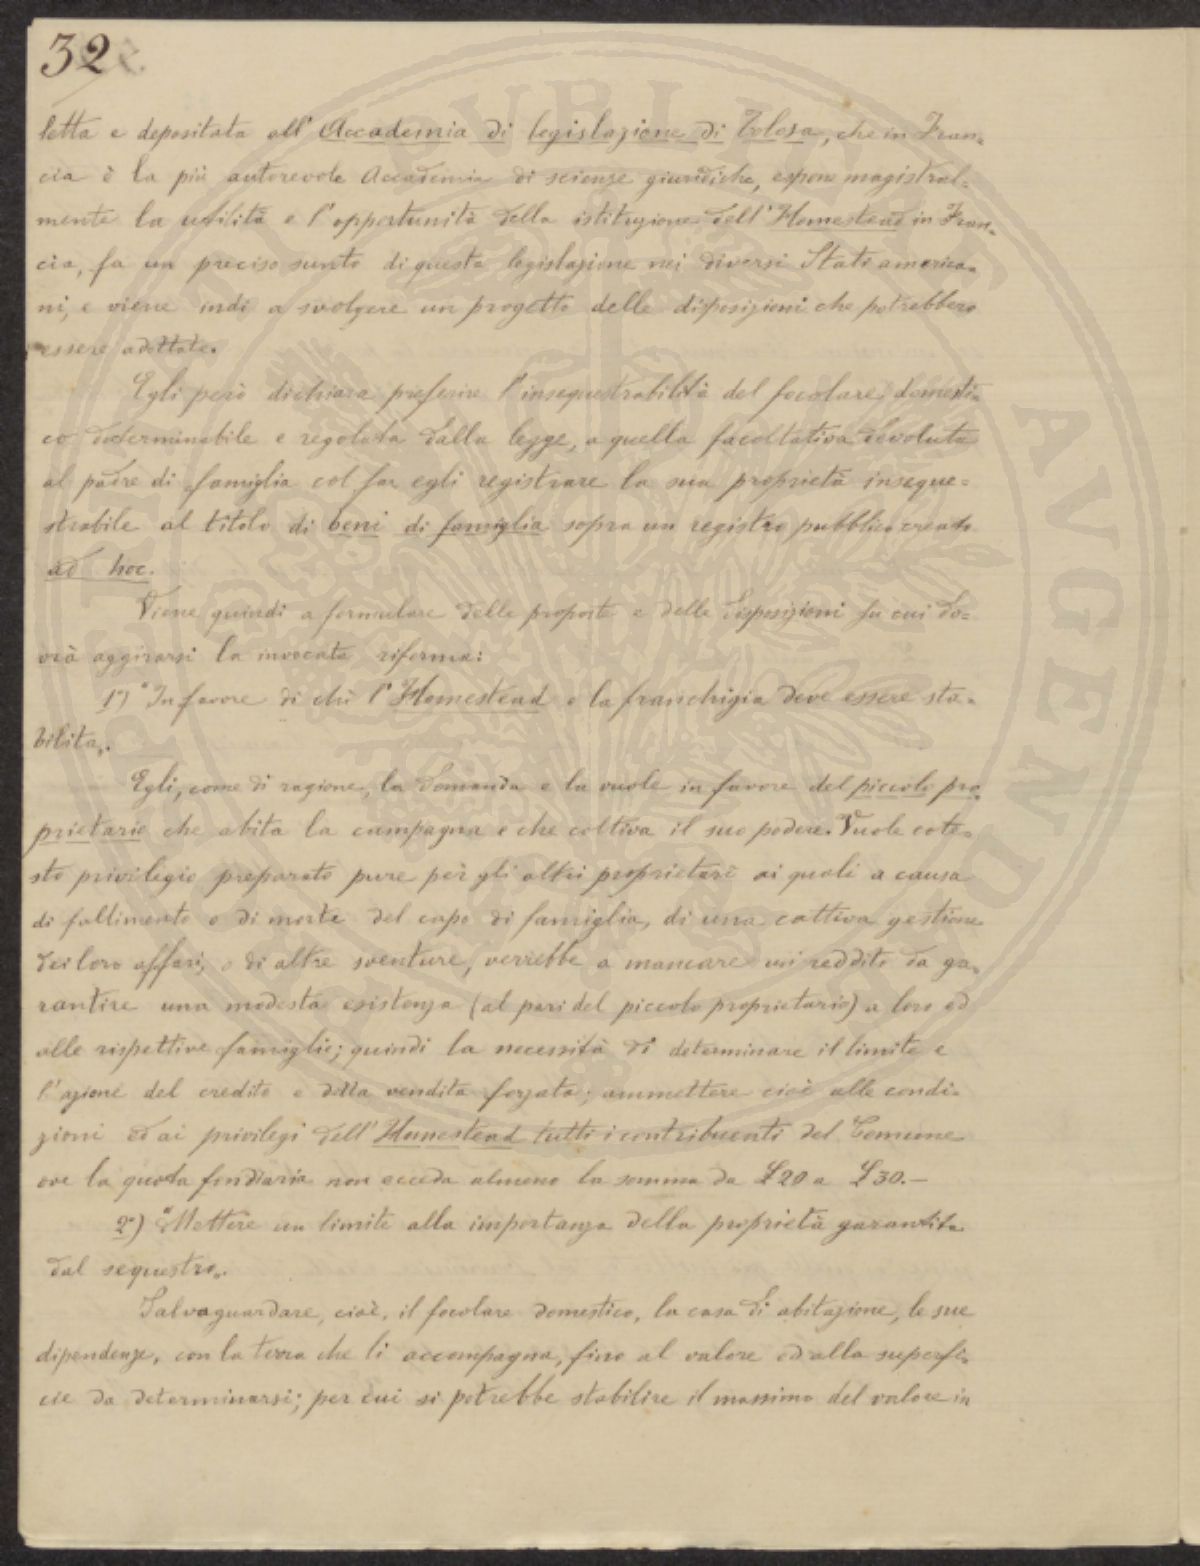 32
letta e depositata all'Accademia di legislazione di Tolosa, che in Fran=
cia è la più autorevole Accademia di scienze giuridiche, espone magistral=
mente la utilità e l'opportunità della istituzione dell'Homestead in Fran=
cia, fa un preciso sunto di questa legislazione nei diversi Stati america=
ni, e viene indi a svolgere un progetto delle disposizioni che potrebbero
essere adottate.
Egli però dichiara preferire l'insequestrabilità del focolare domesti=
co determinabile e regolata dalla legge, a quella facoltativa devoluta
al padre di famiglia col far egli registrare la sua proprietà inseque=
strabile al titolo di beni di famiglia sopra un registro pubblico creato
ad hoc.
Viene quindi a formulare delle proposte e delle disposizioni su cui do=
vrà aggirarsi la invocata riforma:
1°) "In favore di chi l'Homestead o la franchigia deve essere sta=
bilita„.
Egli, come di ragione, la domanda e la vuole in favore del piccolo pro=
prietario che abita la campagna e che coltiva il suo podere. Vuole cote=
sto privilegio preparato pure per gli altri proprietari ai quali a causa
di fallimento o di morte del capo di famiglia, di una cattiva gestione
dei loro affari, o di altre sventure, verrebbe a mancare un reddito da ga=
rantire una modesta esistenza (al pari del piccolo proprietario) a loro ed
alle rispettive famiglie; quindi la necessità di determinare il limite e
l'azione del credito e della vendita forzata; ammettere cioè alle condi=
zioni ed ai privilegi dell'Homestead tutti i contribuenti del Comune
ove la quota fondiaria non ecceda almeno la somma da £20 a £30.—
2°) "Mettere un limite alla importanza della proprietà garantita
dal sequestro„.
Salvaguardare, cioè, il focolare domestico, la casa di abitazione, le sue
dipendenze, con la terra che li accompagna, fino al valore ed alla superfi=
cie da determinarsi; per cui si potrebbe stabilire il massimo del valore in